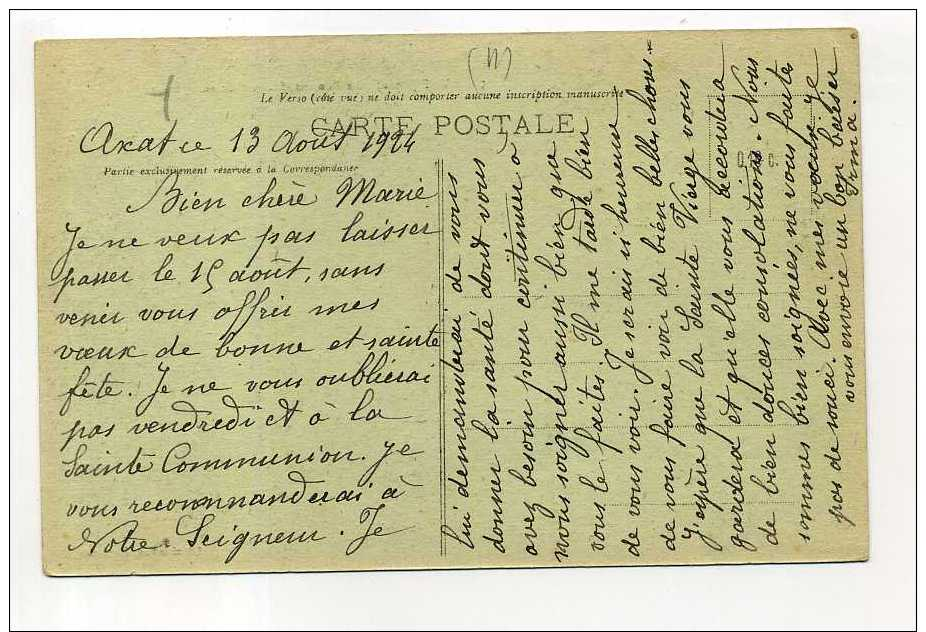 (n)
Le Verso (côté vue) ne doit comporter aucune inscription manuscrite
CARTE POSTALE
Axat ce 13 Août 1924
Partie exclusivement réservée à la Correspondance
Bien chère Marie
Je ne veux pas laisser
passer le 15 août, sans
venir vous offrir mes
vœux de bonne et sainte
fête. Je ne vous oublierai
pas vendredi et à la
Sainte Communion. Je
vous recommanderai à
Notre Seigneur. Je
lui demanderai de vous
donner la santé dont vous
avez besoin pour continuer à
nous soigner aussi bien que
vous le faites. Il me tarde bien
de vous voir. Je serai si heureuse
de vous faire voir de bien belles choses.
J'espère que la Sainte Vierge vous
gardera et qu'elle vous accordera
de bien douces consolations. Nous
sommes bien soignées, ne vous faites
pas de souci. Avec mes vœux je
vous envoie un bon baiser
Irma.